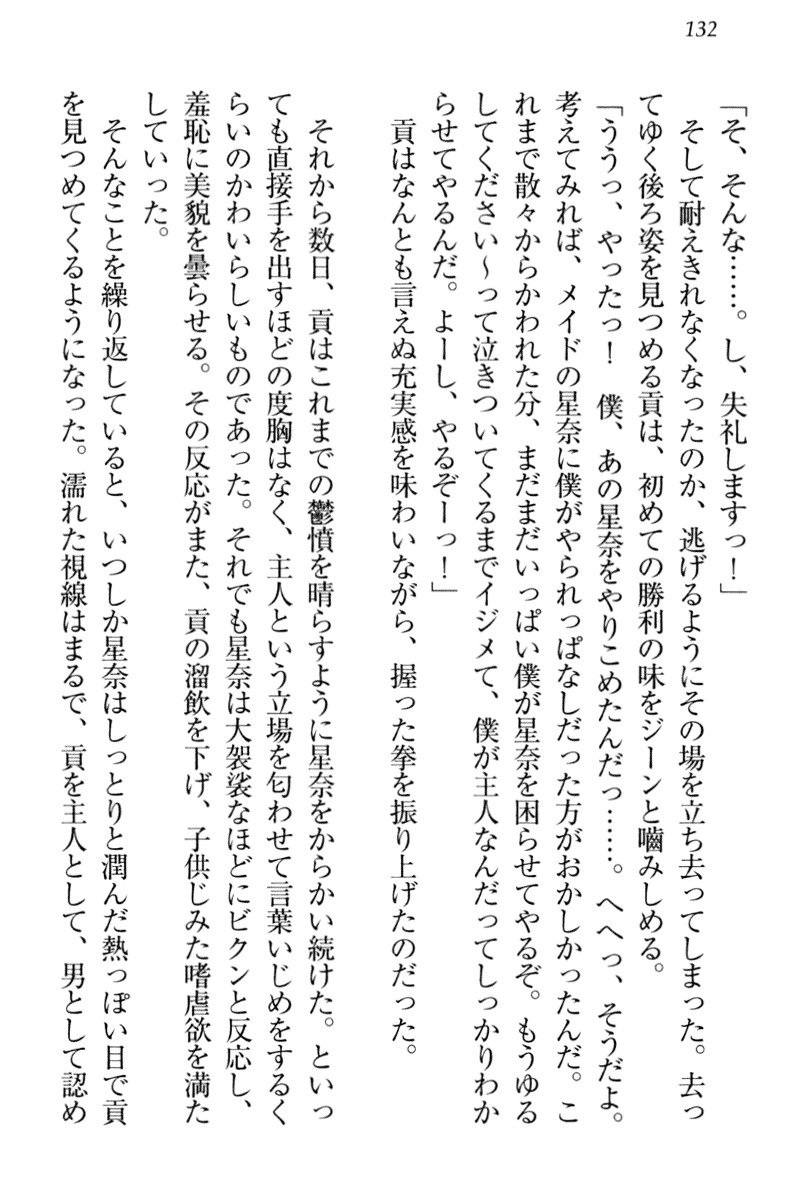 132
「そ、そんな……。し、失礼しますっ！」
そして耐えきれなくなったのか、逃げるようにその場を立ち去ってしまった。去っ
てゆく後ろ姿を見つめる貢は、初めての勝利の味をジーンと噛みしめる。
「ううっ、やったっ！　僕、あの星奈をやりこめたんだっ……。へへっ、そうだよ。
考えてみれば、メイドの星奈に僕がやられっぱなしだった方がおかしかったんだ。こ
れまで散々からかわれた分、まだまだいっぱい僕が星奈を困らせてやるぞ。もうゆる
してください〜って泣きついてくるまでイジメて、僕が主人なんだってしっかりわか
らせてやるんだ。よーし、やるぞーっ！」
貢はなんとも言えぬ充実感を味わいながら、握った拳を振り上げたのだった。
それから数日、貢はこれまでの鬱憤を晴らすように星奈をからかい続けた。といっ
ても直接手を出すほどの度胸はなく、主人という立場を匂わせて言葉いじめをするく
らいのかわいらしいものであった。それでも星奈は大袈裟なほどにビクンと反応し、
羞恥に美貌を曇らせる。その反応がまた、貢の溜飲を下げ、子供じみた嗜虐欲を満た
していった。
そんなことを繰り返していると、いつしか星奈はしっとりと潤んだ熱っぽい目で貢
を見つめてくるようになった。濡れた視線はまるで、貢を主人として、男として認め